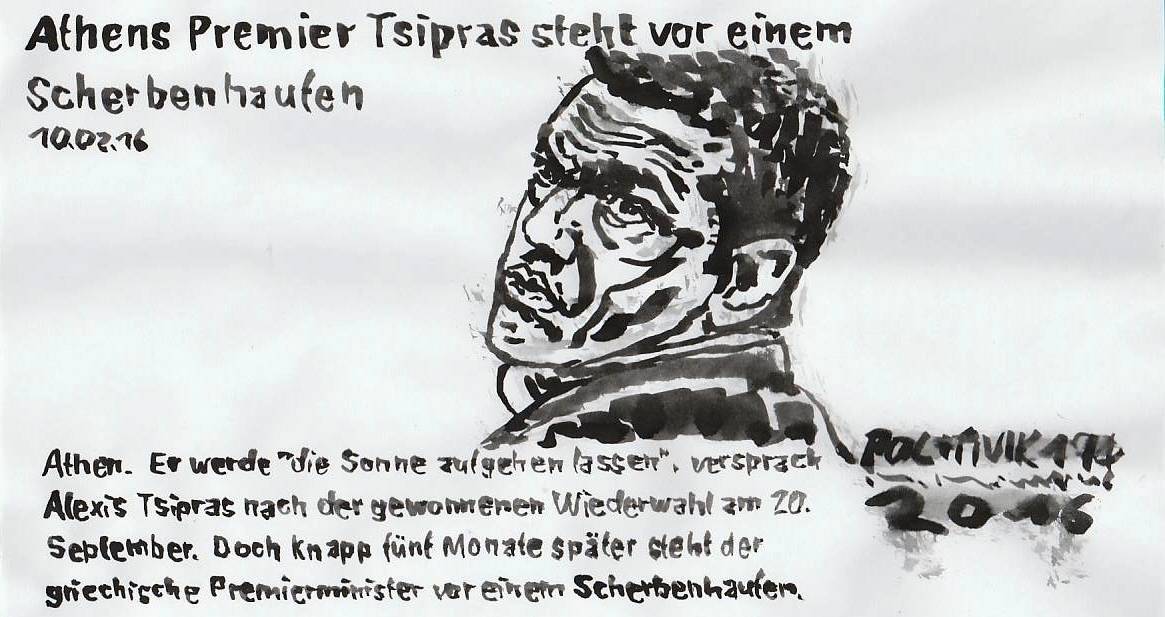 Athens Premier Tsipras steht vor einem
Scherbenhaufen
10.02.16
Athen. Er werde "die Sonne aufgehen lassen", versprach
Alexis Tsipras nach der gewonnenen Wiederwahl am 20.
September. Doch knapp fünf Monate später steht der
griechische Premierminister vor einem Scherbenhaufen.
2016